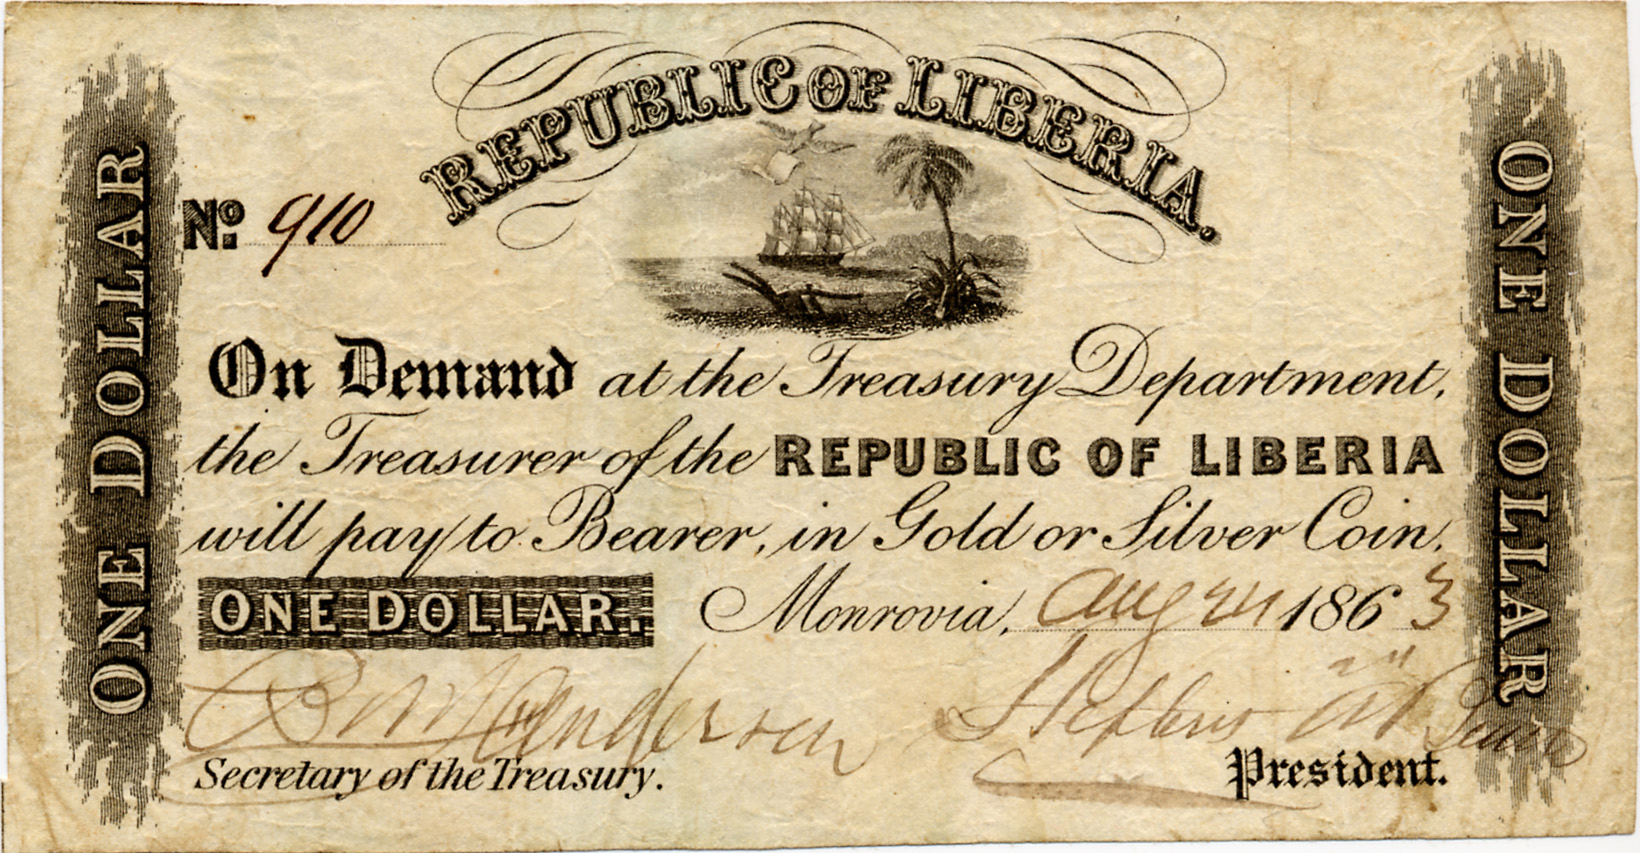 REPUBLIC OF LIBERIA.
No. 910
ONE DOLLAR
ONE DOLLAR
On Demand at the Treasury Department,
the Treasurer of the REPUBLIC OF LIBERIA
will pay to Bearer, in Gold or Silver Coin.
ONE DOLLAR. Monrovia, Aug 24 1863
Anderson Stephen
Secretary of the Treasury. President.